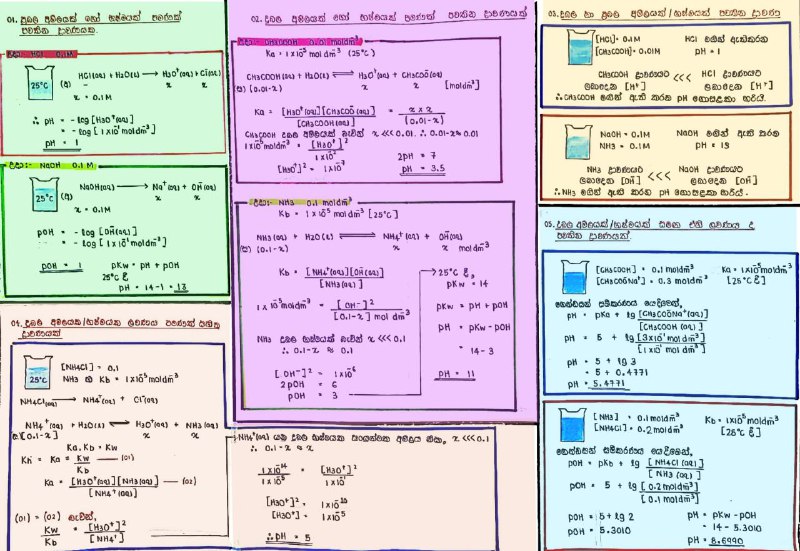 01. ප්‍රබල අම්ලයක් හෝ භෂ්මයක් පමණක්
පවතින ද්‍රාවණයක.
උදා:- HCl 0.1M
25°C
HCl(aq) + H₂O(l) ⟶ H₃O⁺(aq) + Cl⁻(aq)
x x
x = 0.1M
∴ pH = -log[H₃O⁺(aq)]
= -log[1×10⁻¹moldm⁻³]
pH = 1
උදා:- NaOH 0.1M
25°C
NaOH(aq) ⟶ Na⁺(aq) + OH⁻(aq)
x x
x = 0.1M
pOH = -log[OH⁻(aq)]
= -log[1×10⁻¹moldm⁻³]
pOH = 1 pKw = pH + pOH
25°C දී,
pH = 14-1 = 13
02. දුබල අම්ලයක් හෝ භෂ්මයක් පමණක් පවතින ද්‍රාවණයක්
උදා:- CH₃COOH 0.01 moldm⁻³
Ka = 1×10⁻⁵ mol dm⁻³ (25°C)
CH₃COOH(aq) + H₂O(l) ⇌ H₃O⁺(aq) + CH₃COO⁻(aq)
(0.01-x) x x [moldm⁻³]
Ka = [H₃O⁺(aq)][CH₃COO⁻(aq)] / [CH₃COOH(aq)] = x × x / (0.01-x)
CH₃COOH දුබල අම්ලයක් බැවින් x <<< 0.01. ∴ 0.01-x ≈ 0.01
1×10⁻⁵moldm⁻³ = [H₃O⁺]² / 1×10⁻²
[H₃O⁺]² = 1×10⁻⁷
2pH = 7
pH = 3.5
උදා:- NH₃ 0.1 moldm⁻³
Kb = 1×10⁻⁵ mol dm⁻³ [25°C]
NH₃(aq) + H₂O(l) ⇌ NH₄⁺(aq) + OH⁻(aq)
(0.1-x) x x moldm⁻³
Kb = [NH₄⁺(aq)][OH⁻(aq)] / [NH₃(aq)]
1×10⁻⁵moldm⁻³ = [OH⁻]² / [0.1-x] mol dm⁻³
NH₃ දුබල භෂ්මයක් බැවින් x <<< 0.1
∴ 0.1-x ≈ 0.1
[OH⁻]² = 1×10⁻⁶
2pOH = 6
pOH = 3
25°C දී,
pKw = 14
pKw = pH + pOH
pH = pKw - pOH
= 14-3
pH = 11
03. දුබල හා ප්‍රබල අම්ලයක්/භෂ්මයක් පවතින ද්‍රාවණ
[HCl] = 0.1M HCl මගින් ඇතිකරන
[CH₃COOH] = 0.01M pH = 1
CH₃COOH ද්‍රාවණයට <<< HCl ද්‍රාවණයට
ලැබෙන [H⁺] ලැබෙන [H⁺]
∴ CH₃COOH මගින් ඇති කරන pH නොසලකා හරියි.
NaOH = 0.1M NaOH මගින් ඇති කරන
NH₃ = 0.1M pH = 13
NH₃ ද්‍රාවණයට <<< NaOH ද්‍රාවණයට
ලැබෙන [OH⁻] ලැබෙන [OH⁻]
∴ NH₃ මගින් ඇති කරන pH නොසලකා හරියි.
04. දුබල අම්ලයක/භෂ්මයක ලවණය පමණක් සහිත
ද්‍රාවණයක්
25°C
[NH₄Cl] = 0.1
NH₃ හි Kb = 1×10⁻⁵moldm⁻³
NH₄Cl(aq) ⟶ NH₄⁺(aq) + Cl⁻(aq)
NH₄⁺(aq) + H₂O(l) ⇌ H₃O⁺(aq) + NH₃(aq)
[0.1-x] x x
Ka.Kb = Kw
Kh = Ka = Kw / Kb — (01)
Ka = [H₃O⁺(aq)][NH₃(aq)] / [NH₄⁺(aq)] — (02)
(01) = (02) බැවින්,
Kw / Kb = [H₃O⁺]² / [NH₄⁺]
NH₄⁺(aq) යනු දුබල භෂ්මයක සංයුග්මක අම්ලය නිසා, x <<< 0.1
∴ 0.1-x ≈ x
1×10⁻¹⁴ / 1×10⁻⁵ = [H₃O⁺]² / 1×10⁻¹
[H₃O⁺]² = 1×10⁻¹⁰
[H₃O⁺] = 1×10⁻⁵
∴ pH = 5
05. දුබල අම්ලයක්/භෂ්මයක් සමග එහි ලවණය ද
පවතින ද්‍රාවණයක්.
[CH₃COOH] = 0.1 moldm⁻³ Ka = 1×10⁻⁵moldm⁻³
[CH₃COO⁻Na⁺] = 0.3 moldm⁻³ [25°C දී]
හෙන්ඩසන් සමීකරණය යෙදීමෙන්,
pH = pKa + lg [CH₃COO⁻Na⁺(aq)] / [CH₃COOH(aq)]
pH = 5 + lg [3×10⁻¹moldm⁻³] / [1×10⁻¹moldm⁻³]
pH = 5 + lg 3
= 5 + 0.4771
pH = 5.4771
[NH₃] = 0.1moldm⁻³ Kb = 1×10⁻⁵moldm⁻³
[NH₄Cl] = 0.2moldm⁻³ [25°C දී]
හෙන්ඩසන් සමීකරණය යෙදීමෙන්,
pOH = pKb + lg [NH₄Cl(aq)] / [NH₃(aq)]
pOH = 5 + lg [0.2moldm⁻³] / [0.1moldm⁻³]
pOH = 5 + lg 2 pH = pKw - pOH
pOH = 5.3010 = 14 - 5.3010
pH = 8.6990